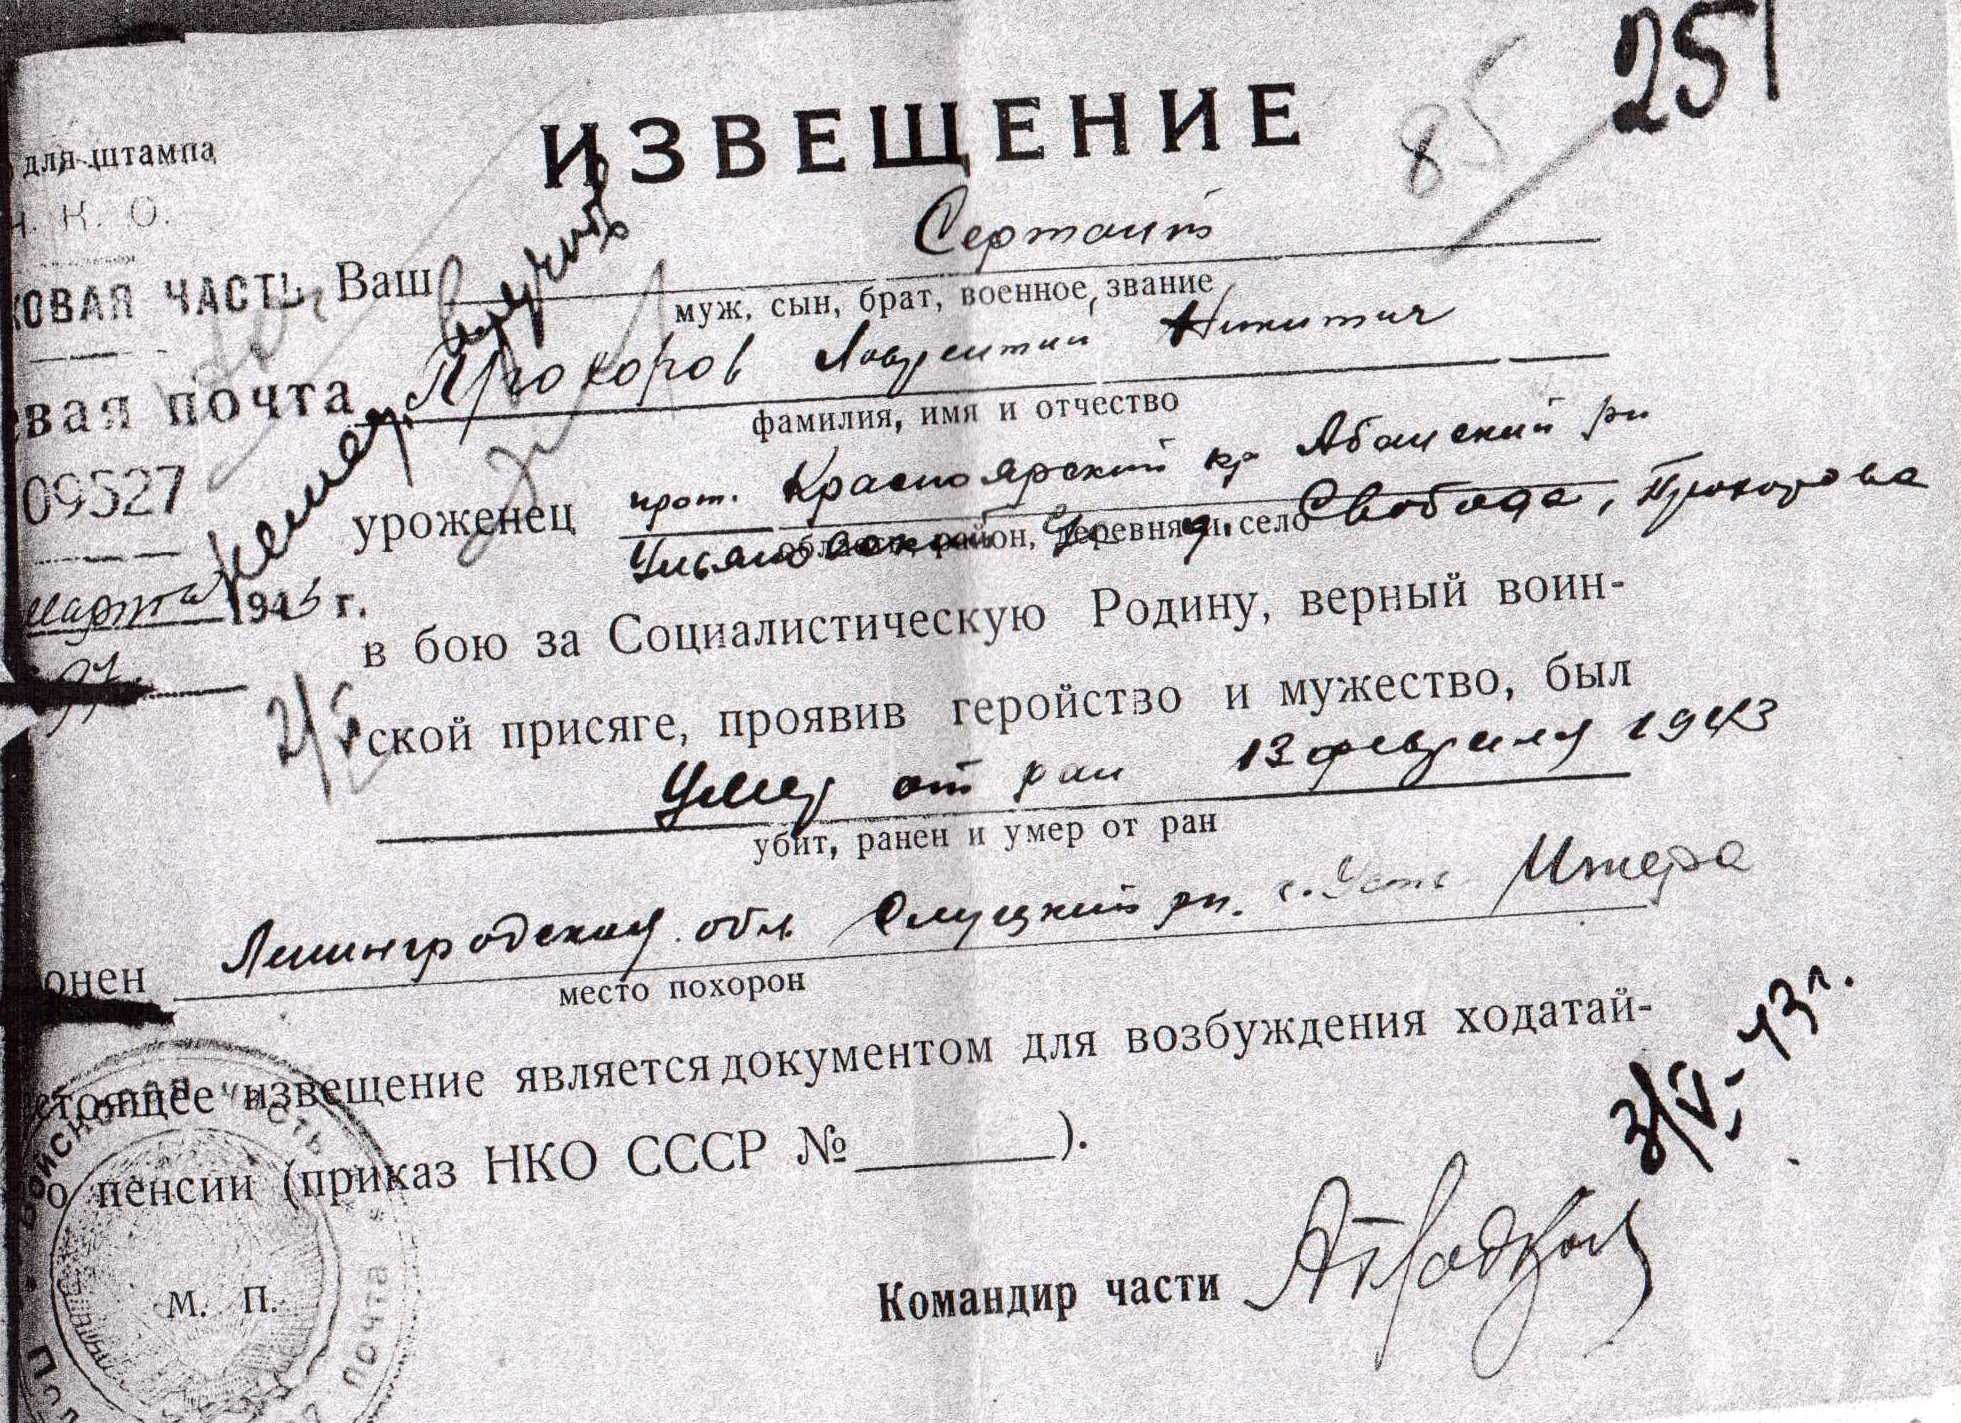 251
85
ИЗВЕЩЕНИЕ
для штампа
Н. К. О.
Сержант
КОВАЯ ЧАСТЬ Ваш
муж, сын, брат, военное звание
Прохоров Лаврентий Никитич
евая почта
фамилия, имя и отчество
09527
уроженец прож. Красноярский кр Абанский рн
область, район, деревня и село
д. Свобода, Прохорова
марта 1943 г.
в бою за Социалистическую Родину, верный воин-
ской присяге, проявив геройство и мужество, был
Умер от ран 13 февраля 1943
убит, ранен и умер от ран
онен Ленинградская обл. Слуцкий рн. с. Усть Ижера
место похорон
стоящее извещение является документом для возбуждения ходатай-
о пенсии (приказ НКО СССР №).
3/V-43 г.
М. П.
Командир части
ВОЙСКОВАЯ ЧАСТЬ
ПОЧТА